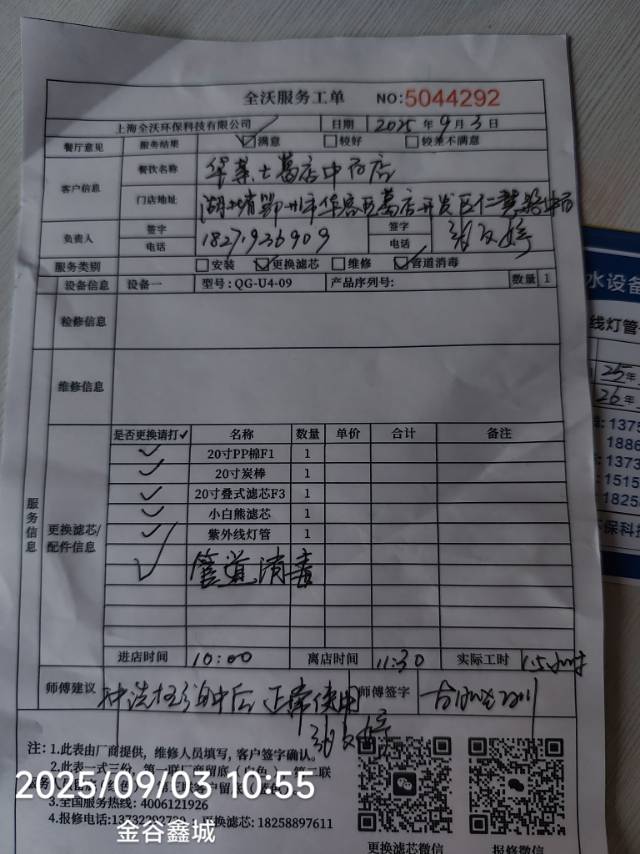 全沃服务工单 NO:5044292
上海全沃环保科技有限公司 日期 2025年9月3日
餐厅意见 服务结果 满意 较好 较差不满意
客户信息 餐饮名称 华莱士葛店中药店
门店地址 湖北省鄂州市华容区葛店开发区
负责人 签字 签字
电话 18271926909 电话
服务类别 安装 更换滤芯 维修 管道消毒
设备信息 设备一 型号:QG-U4-09 产品序列号: 数量 1
检修信息
维修信息
服务信息
更换滤芯/配件信息
是否更换请打✓ 名称 数量 单价 合计 备注
✓ 20寸PP棉F1 1
✓ 20寸炭棒 1
✓ 20寸叠式滤芯F3 1
✓ 小白熊滤芯 1
✓ 紫外线灯管 1
✓ 管道消毒
进店时间 10:00 离店时间 11:30 实际工时 1.5小时
师傅建议 正常使用 师傅签字
注:1.此表由厂商提供，维修人员填写，客户签字确认。
2.此表一式三份，第一联厂商留底
3.全国服务热线:4006121926
4.报修电话: 更换滤芯:18258897611
更换滤芯微信 报修微信
2025/09/03 10:55
金谷鑫城
水设备
线灯管
25年
26年
1375
1886
1373
1515
1825
保科技